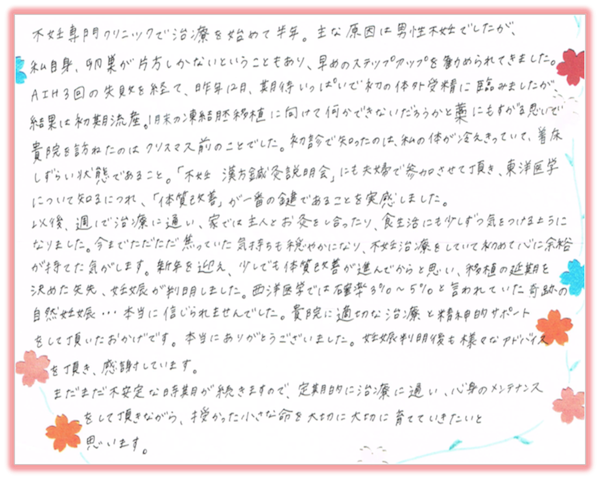 不妊専門クリニックで治療を始めて半年。主な原因は男性不妊でしたが、
私自身、卵巣が片方しかないということもあり、早めのステップアップを勧められてきました。
AIH3回の失敗を経て、昨年12月、期待いっぱいで初の体外受精に臨みましたが
結果は初期流産。1月末の凍結胚移植に向けて何かできないだろうかと藁にもすがる思いで
貴院を訪ねたのはクリスマス前のことでした。初診で知ったのは、私の体が冷えきっていて、着床
しずらい状態であること。「不妊 漢方鍼灸説明会」にも夫婦で参加させて頂き、東洋医学
について知るにつれ、「体質改善」が一番の鍵であることを実感しました。
以後、週1で治療に通い、家では主人とお灸をし合ったり、食生活にも少しずつ気をつけるように
なりました。今までただただ焦っていた気持ちも穏やかになり、不妊治療をしていて初めて心に余裕
が持てた気がします。新年を迎え、少しでも体質改善が進んでからと思い、移植の延期を
決めた矢先、妊娠が判明しました。西洋医学では確率3%~5%と言われていた奇跡の
自然妊娠…本当に信じられませんでした。貴院に適切な治療と精神的サポート
をして頂いたおかげです。本当にありがとうございました。妊娠判明後も様々なアドバイス
を頂き、感謝しています。
まだまだ不安定な時期が続きますので、定期的に治療に通い、心身のメンテナンス
をして頂きながら、授かった小さな命を大切に大切に育てていきたいと
思います。